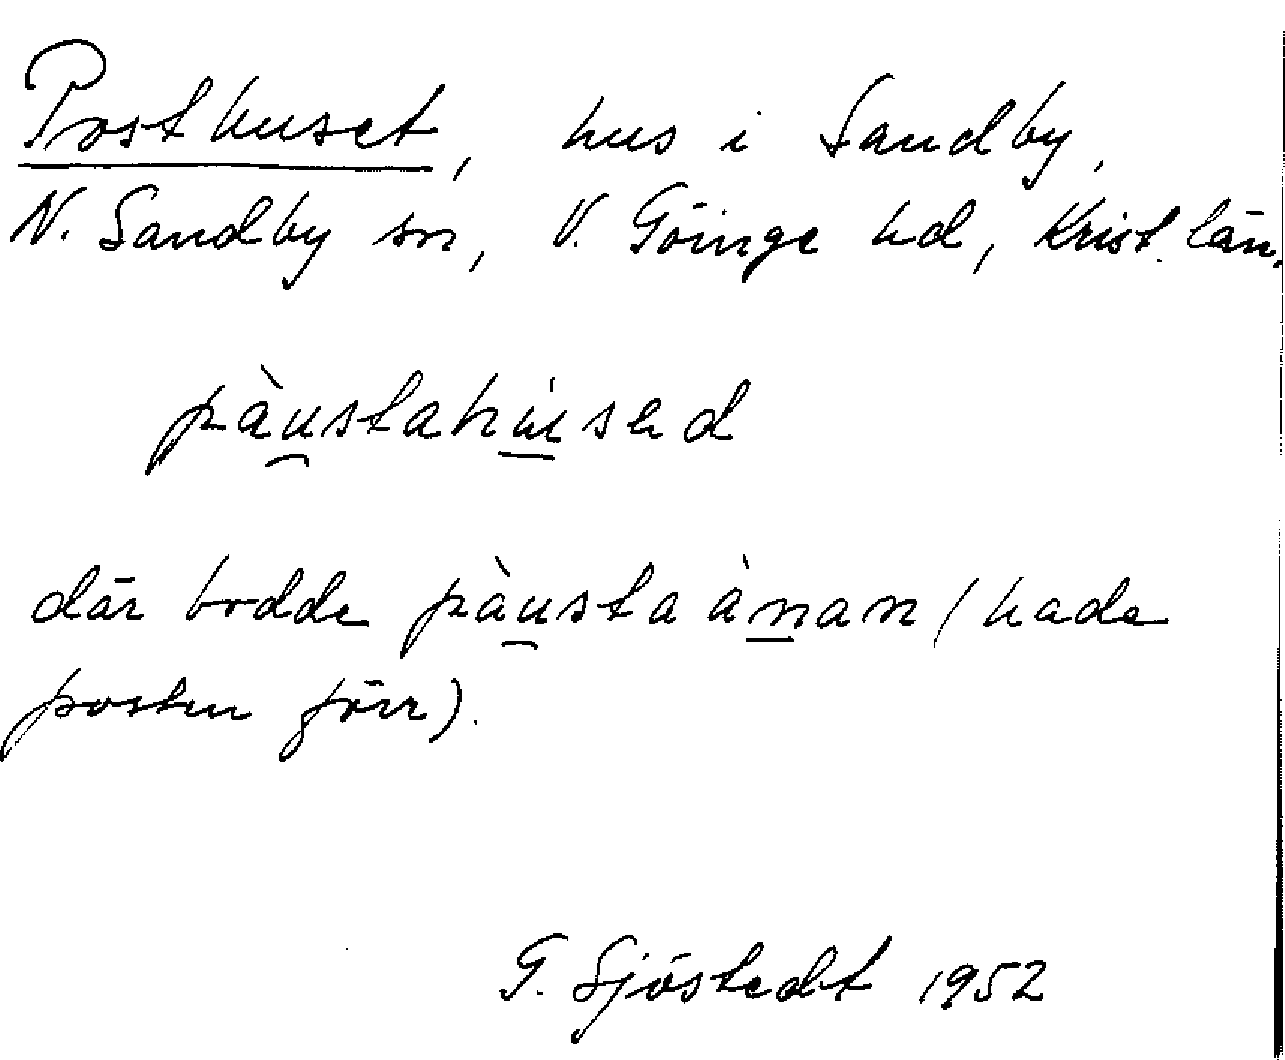 Posthuset, hus i Sandby,
N. Sandby sn, V. Göinge hd, Krist. län.
pàu̯stahu̱sad
där bodde pàu̯sta àṉan (hade
posten förr).
G. Sjöstedt 1952